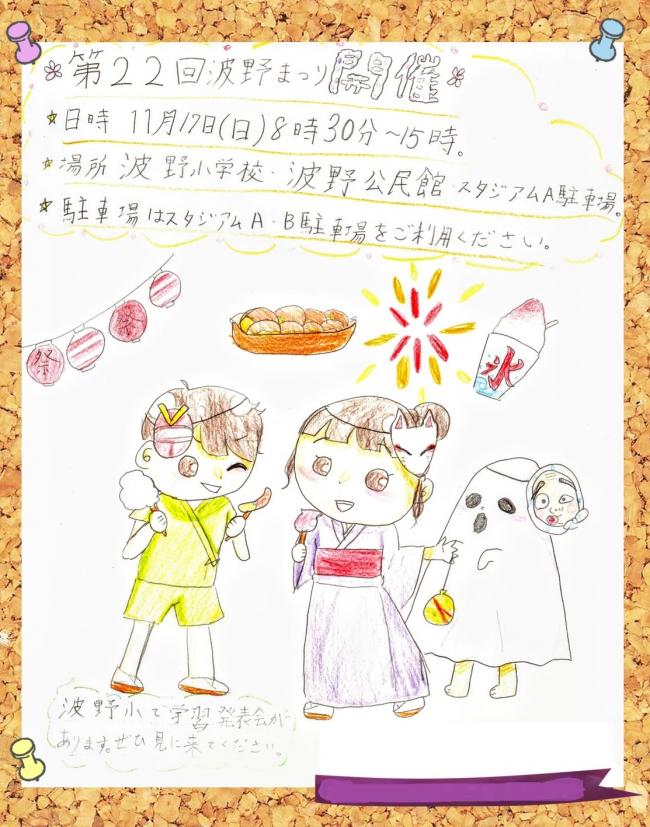 第22回波野まつり開催
日時 11月17日(日)8時30分~15時。
場所 波野小学校・波野公民館・スタジアムA駐車場。
駐車場はスタジアムA・B駐車場をご利用ください。
祭
祭
氷
波野小で学習発表会が
あります。ぜひ見に来てください。